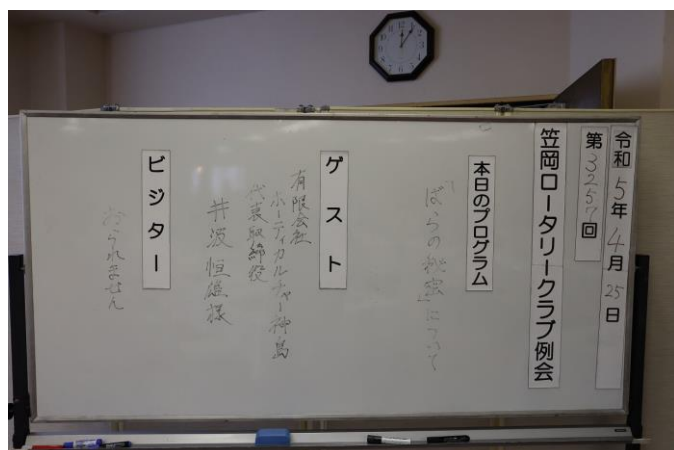 令和5年4月25日
第3257回
笠岡ロータリークラブ例会
本日のプログラム
「ばらの秘密」について
ゲスト
有限会社
ホーティカルチャー神島
代表取締役
井波恒雄様
ビジター
おられません